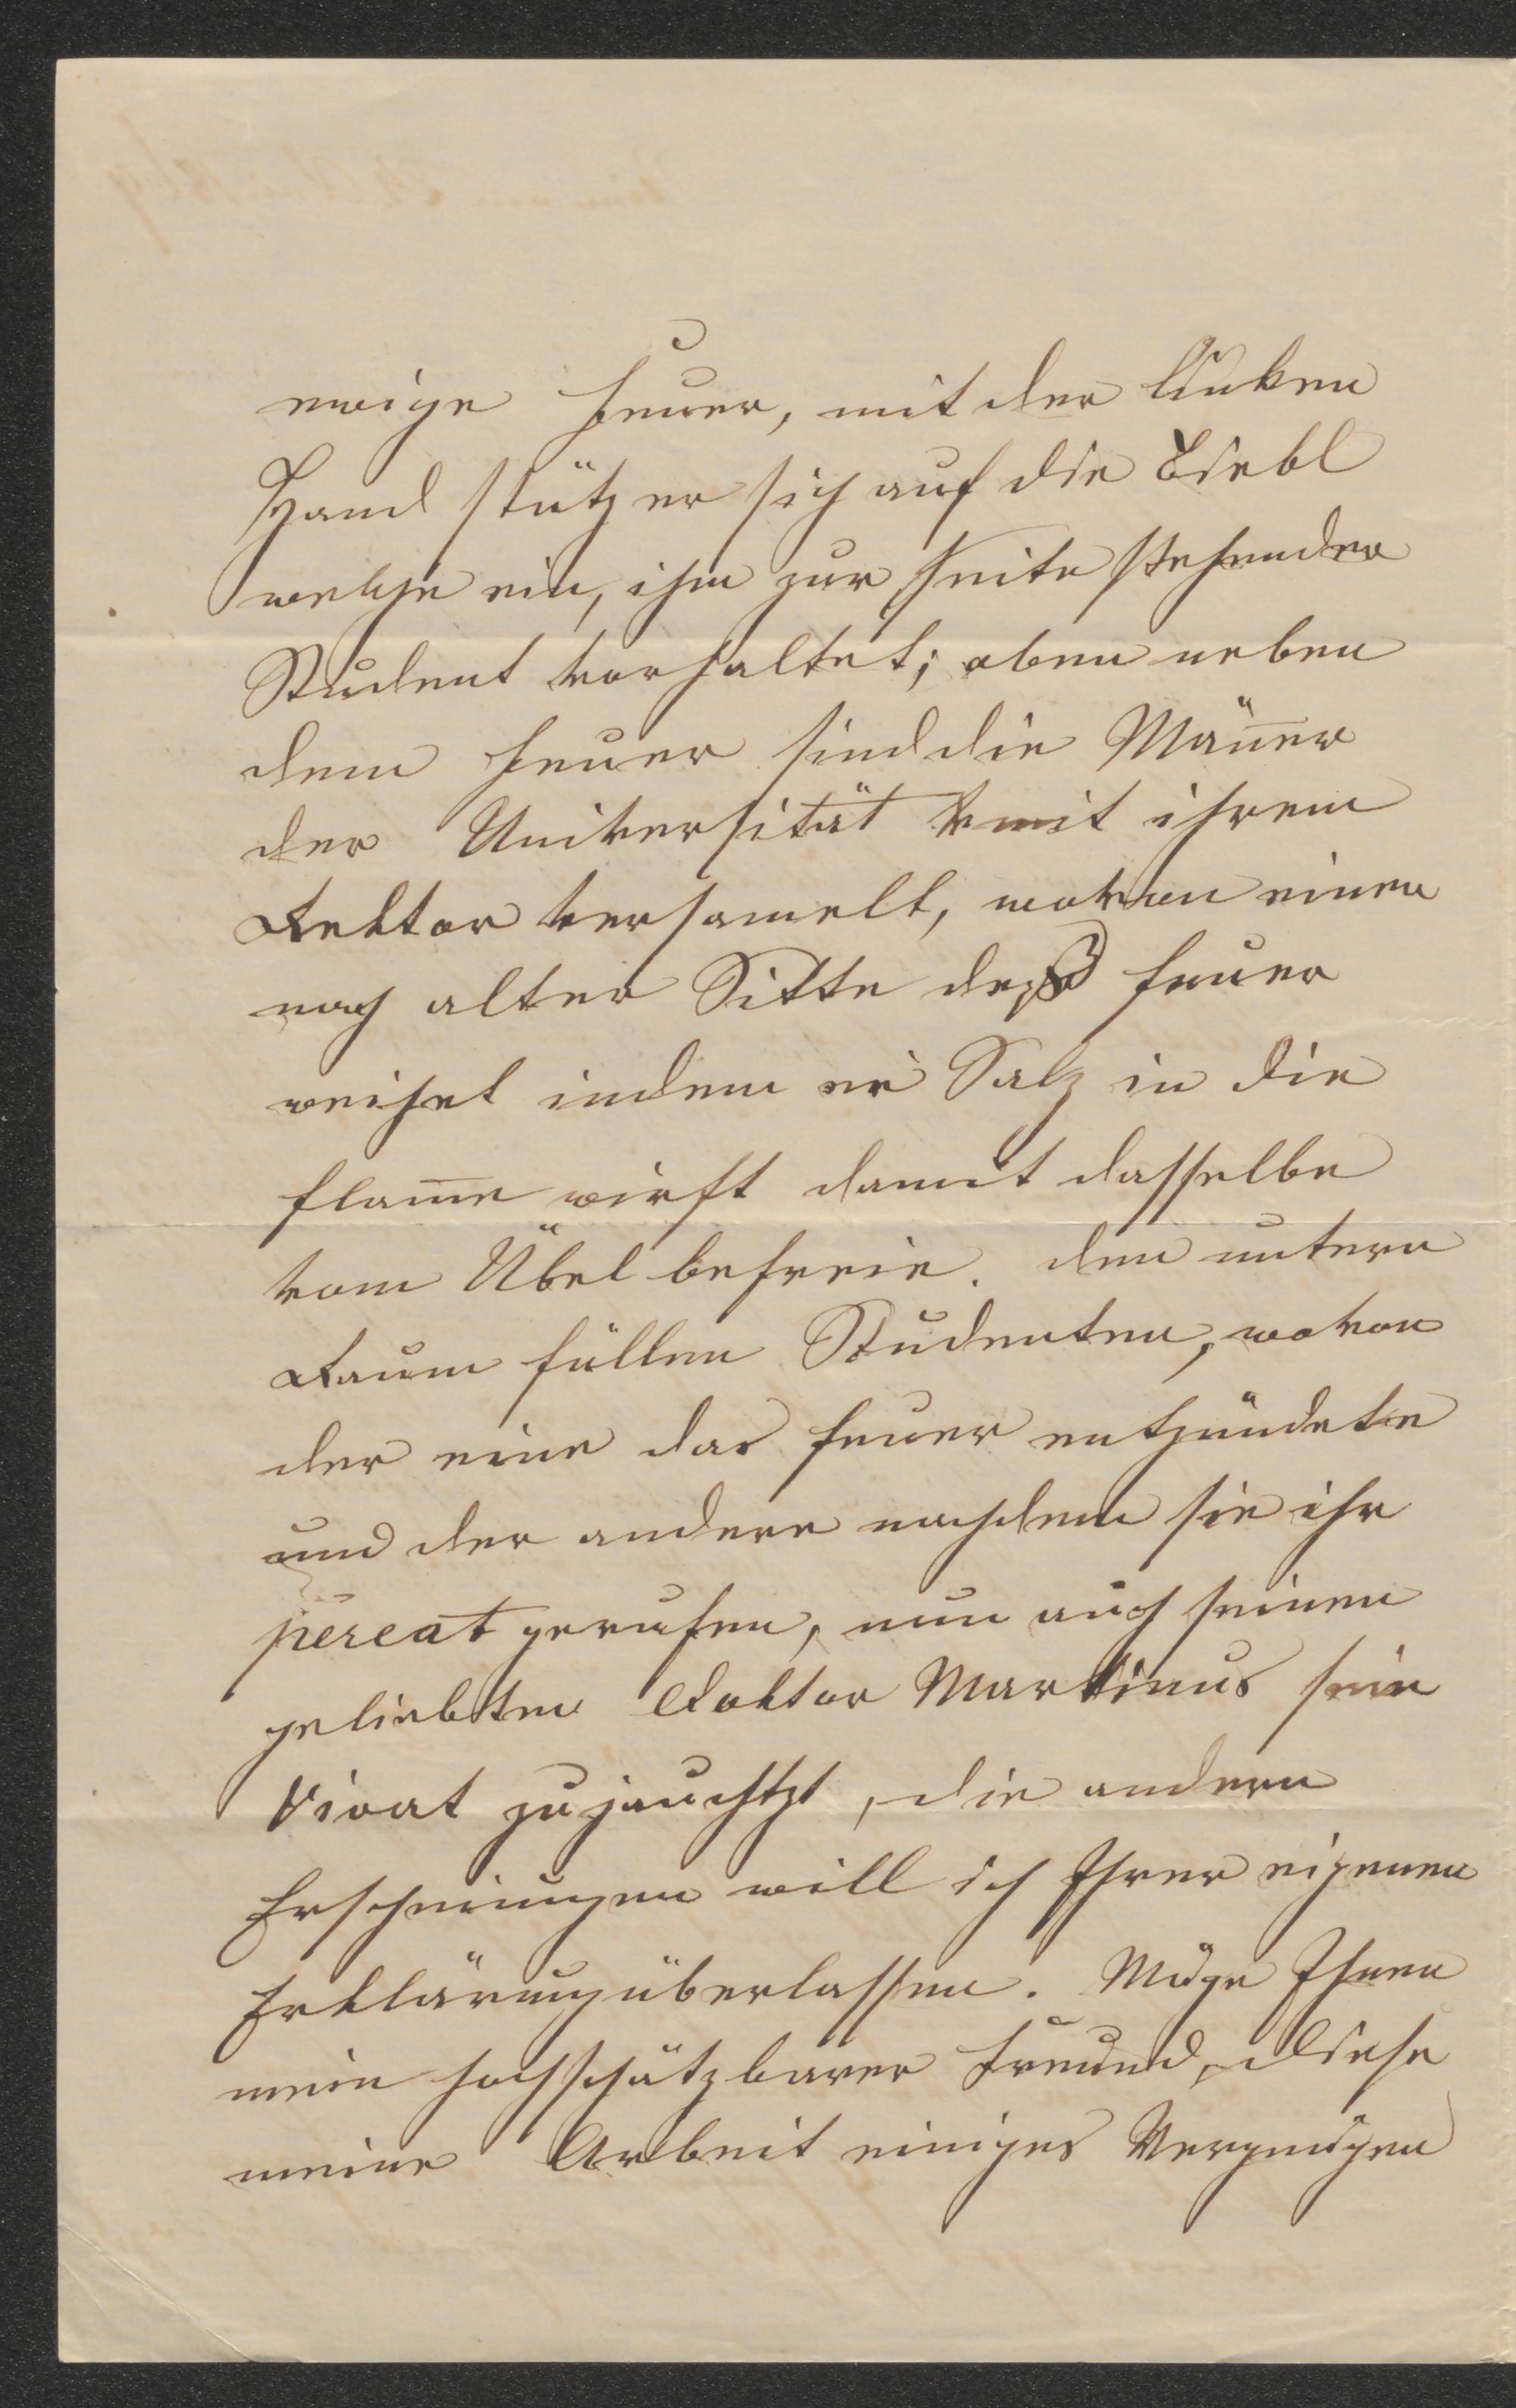 ewige Feuer, mit der linken
Hand stütz er sich auf die Biebl
welche ein, ihm zur Seite stehender
Student vorhaltet; oben neben
dem Feuer sind die Mäñer
der Universität mit ihrem
Rektor versamelt, wovon einer
nach alter Sitte das Feuer
weihet indem er Salz in die
Flam̄e wirft damit dasselbe
vom Übel befreie. den untern
Raum füllen Studenten, wovon
der eine das Feuer entzündete
und der andere nachdem sie ihr
pereat gerufen, nun auch seinen
geliebten Doktor Martinus sein
Vivat zujauchtzt, die andern
Erscheinungen will ich Ihrer eigenen
Erklärung überlassen. Möge Ihnen
mein hochschätzbarer Freund, diese
meine Arbeit einiges Vergnügen